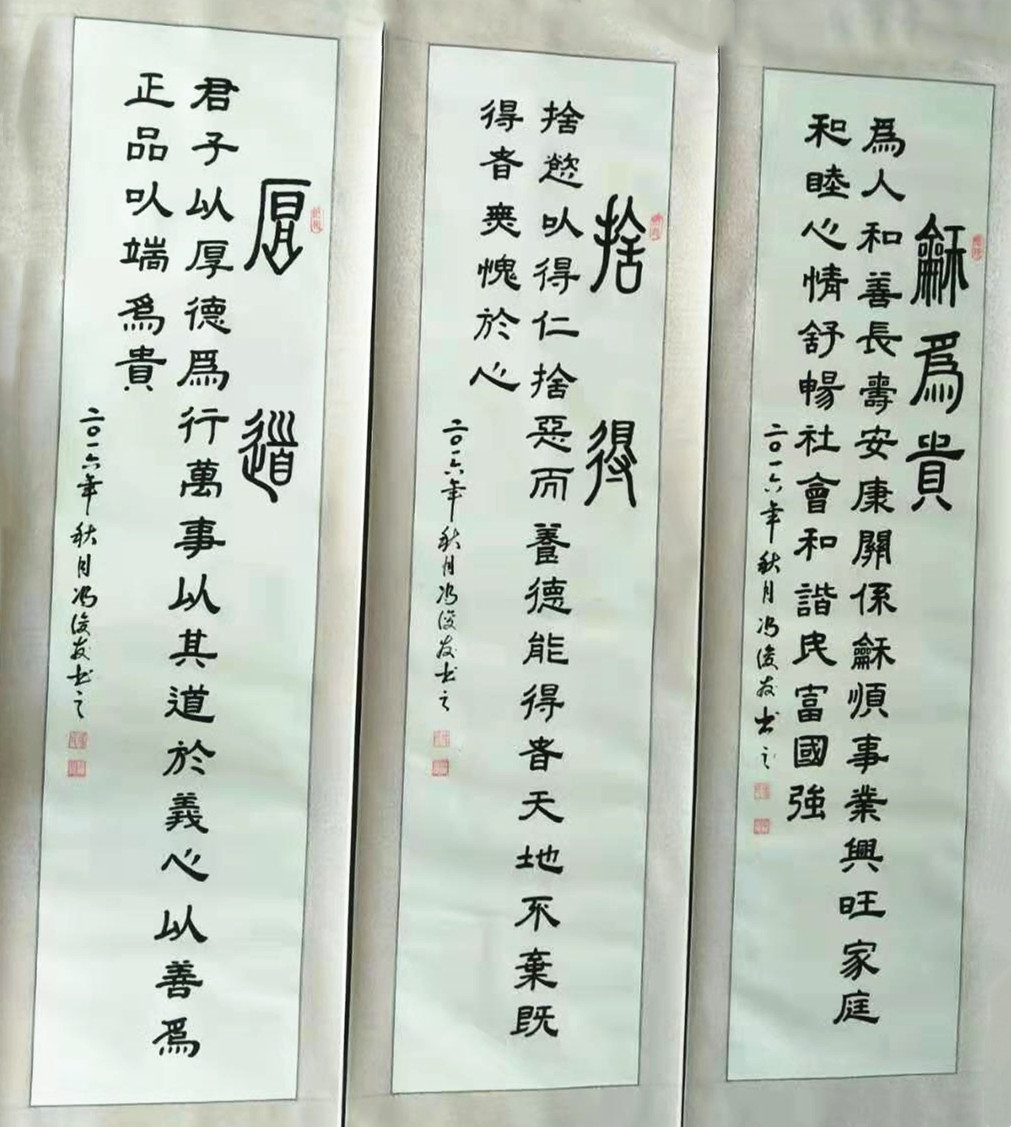 龢爲貴
爲人和善長壽安康關係龢順事業興旺家庭
和睦心情舒暢社會和諧民富國強
二〇一六年秋月冯俊友书之
捨得
捨慾以得仁捨惡而養德能得者天地不棄既
得者無愧於心
二〇一六年秋月冯俊友书之
厚道
君子以厚德爲行萬事以其道於義心以善爲
正品以端爲貴
二〇一六年秋月冯俊友书之